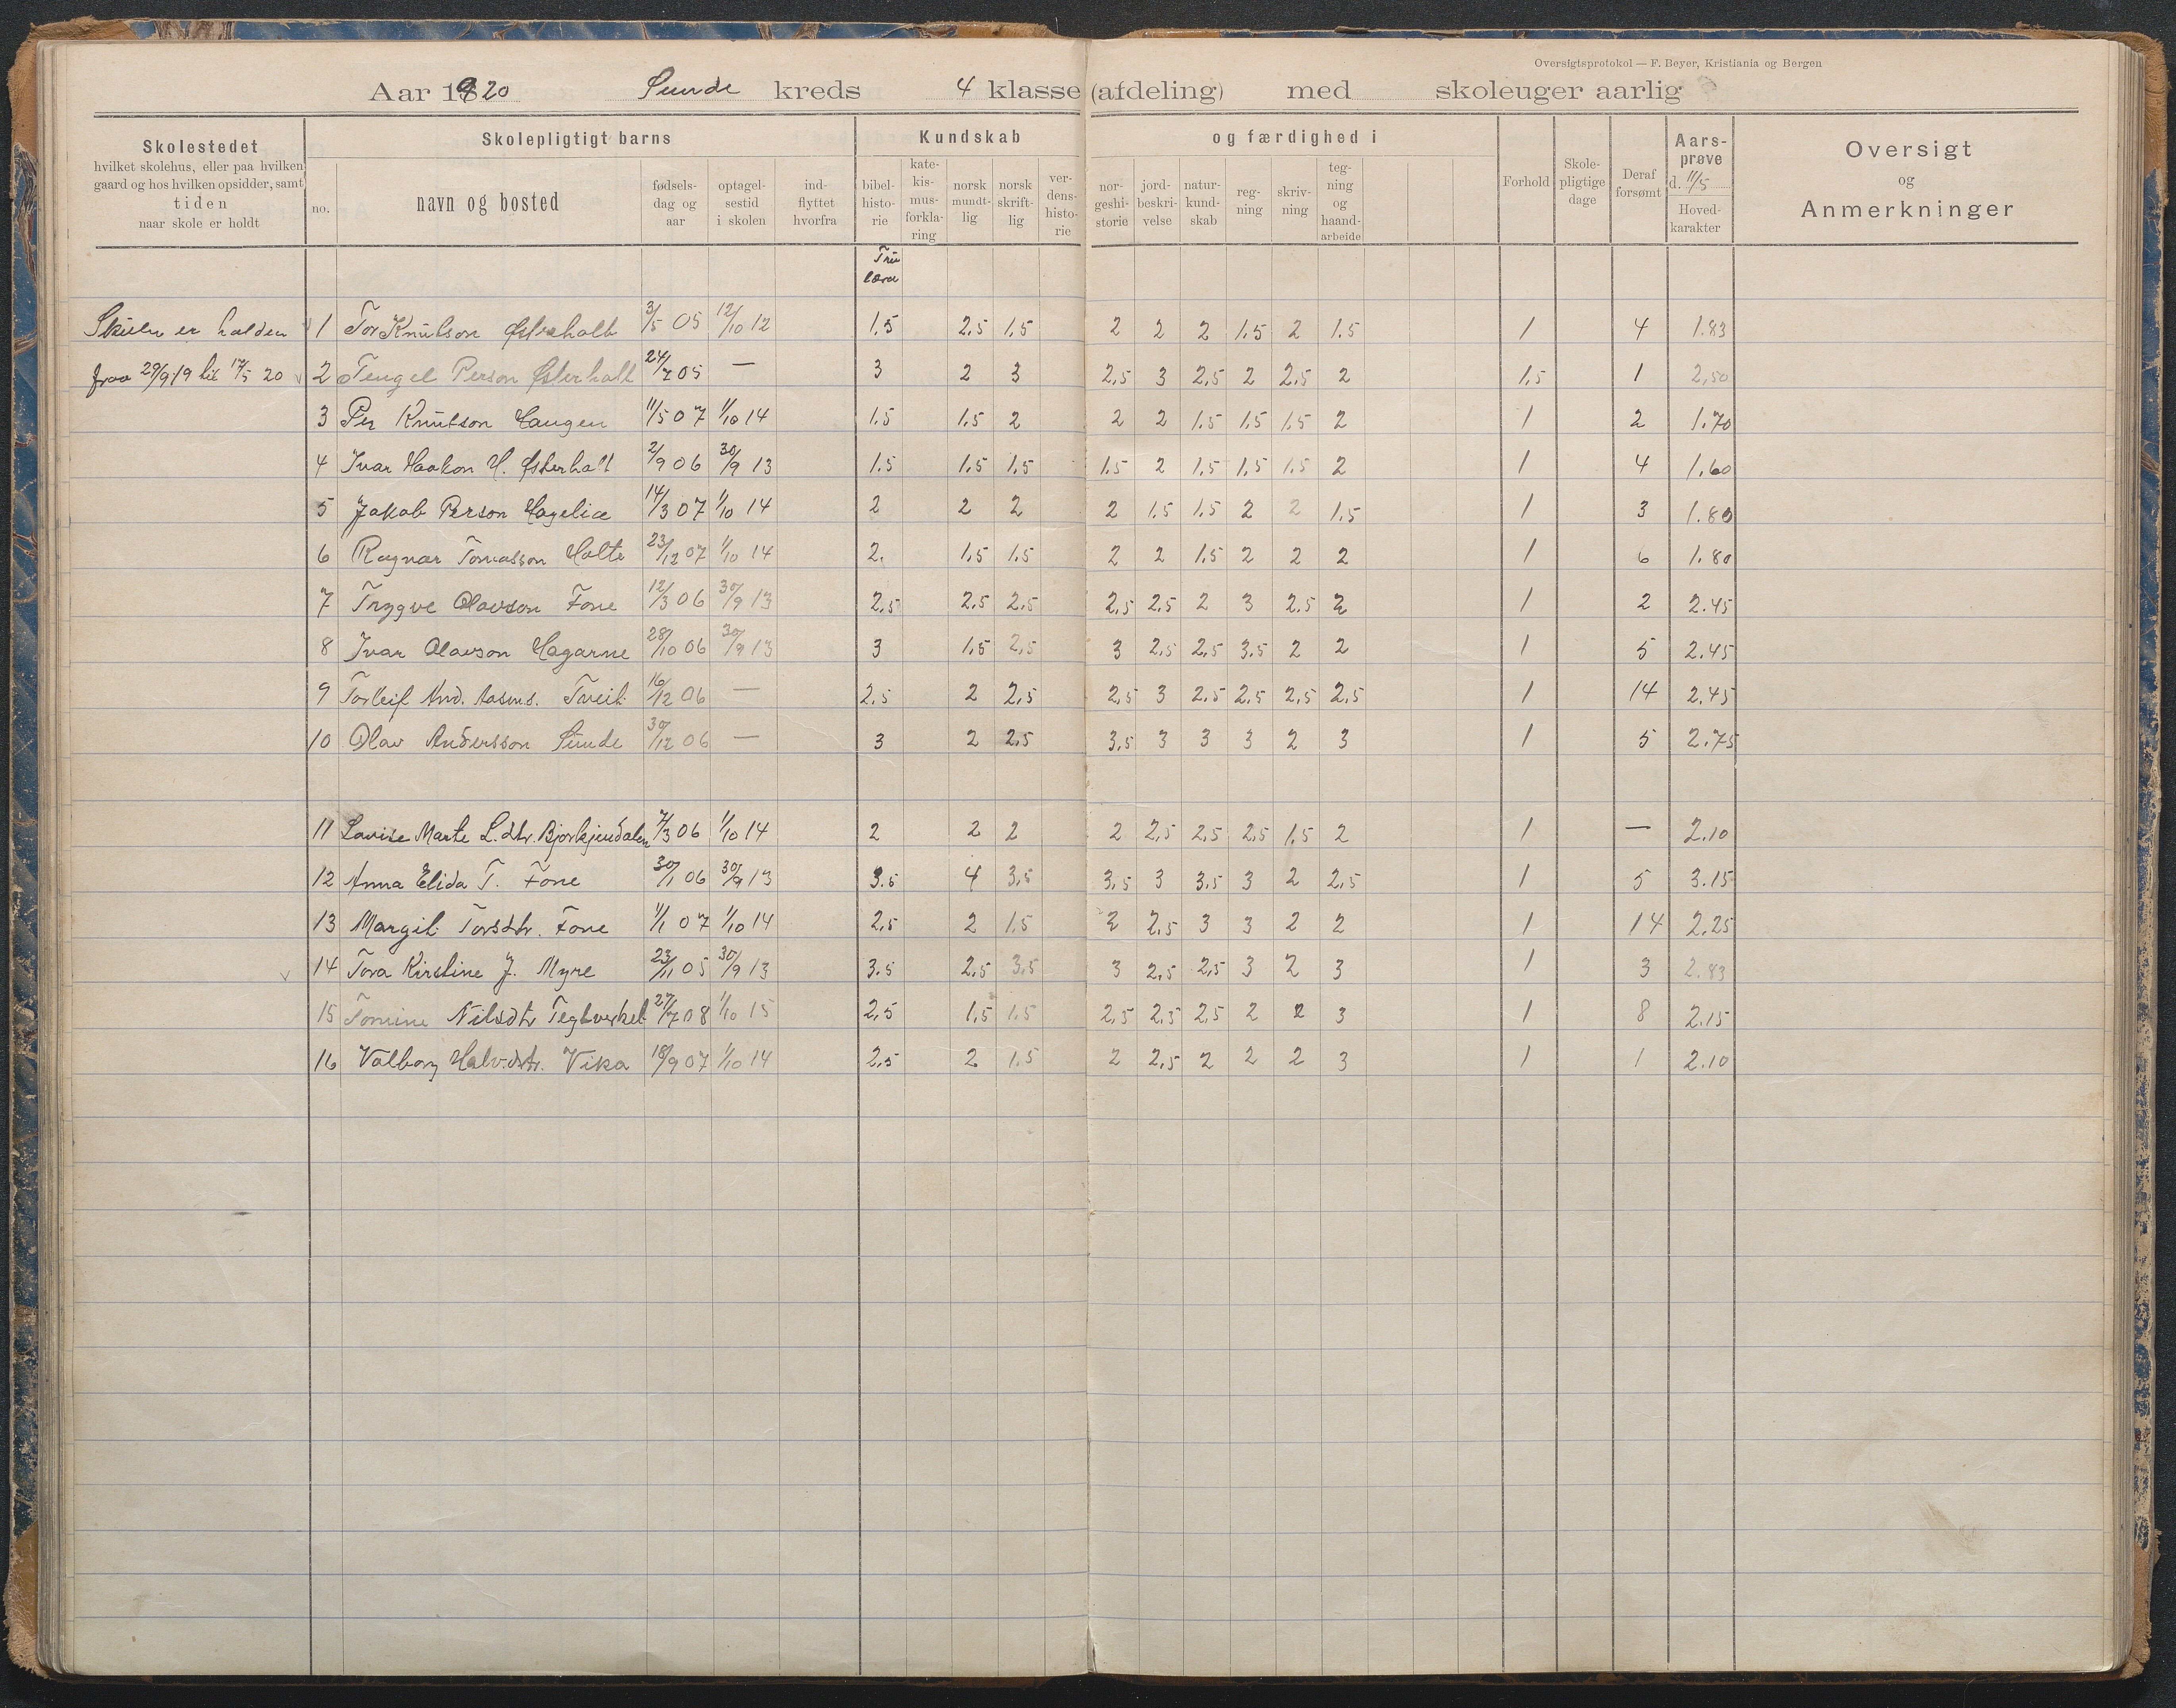 Oversigtsprotokol — F. Beyer, Kristiania og Bergen
Aar 1920 Sunde kreds 4 klasse (afdeling) med skoleuger aarlig
Skolestedet
hvilket skolehus, eller paa hvilken
gaard og hos hvilken opsidder, samt
tiden
naar skole er holdt
Skolepligtigt barns
no.
navn og bosted
fødsels-
dag og
aar
optagel-
sestid
i skolen
ind-
flyttet
hvorfra
Kundskab
bibel-
histo-
rie
kate-
kis-
mus-
forkla-
ring
norsk
mundt-
lig
norsk
skrift-
lig
ver-
dens-
histo-
rie
og færdighed i
nor-
geshi-
storie
jord-
beskri-
velse
natur-
kund-
skab
reg-
ning
skriv-
ning
teg-
ning
og
haand-
arbeide
Forhold
Skole-
pligtige
dage
Deraf
forsømt
Aars-
prøve
d. 11/5
Hoved-
karakter
Oversigt
og
Anmerkninger
Tru
læra
Skulen er halden
fraa 29/9 19 til 17/5 20
1 Tor Knutson Østerholt 3/5 05 12/10 12 1.5 2.5 1.5 2 2 2 1.5 2 1.5 1 4 1.83
2 Tengel Person Østerholt 24/7 05 — 3 2 3 2,5 3 2,5 2 2,5 2 1,5 1 2,50
3 Per Knutson Haugen 11/5 07 1/10 14 1.5 1.5 2 2 2 1.5 1.5 1.5 2 1 2 1.70
4 Ivar Haakon H. Østerholt 2/9 06 30/9 13 1.5 1.5 1.5 1.5 2 1.5 1.5 1.5 2 1 4 1.60
5 Jakob Person Hagelia 14/3 07 1/10 14 2 2 2 2 1.5 1.5 2 2 1.5 1 3 1.80
6 Ragnar Tomasson Holte 23/12 07 1/10 14 2. 1.5 1.5 2 2 1.5 2 2 2 1 6 1.80
7 Trygve Olavson Fone 12/3 06 30/9 13 2,5 2.5 2,5 2,5 2,5 2 3 2.5 2 1 2 2.45
8 Ivar Olavson Hagarne 28/10 06 30/9 13 3 1.5 2,5 3 2,5 2,5 3.5 2 2 1 5 2.45
9 Torleif And. Aasms. Tveit 16/12 06 — 2.5 2 2,5 2,5 3 2,5 2,5 2,5 2,5 1 14 2.45
10 Olav Andersson Sunde 30/12 06 — 3 2 2,5 3,5 3 3 3 2 3 1 5 2.75
11 Lovise Marte L. dtr. Bjorkjendalen 7/3 06 1/10 14 2 2 2 2 2,5 2,5 2,5 1,5 2 1 — 2.10
12 Anna Elida T. Fone 30/1 06 30/9 13 3.5 4 3,5 3,5 3 3,5 3 2 2,5 1 5 3.15
13 Margit Torsdtr. Fone 1/1 07 1/10 14 2,5 2 1.5 2 2,5 3 3 2 2 1 14 2.25
14 Tora Kirstine J. Myre 23/11 05 30/9 13 3.5 2,5 3,5 3 2,5 2,5 3 2 3 1 3 2.83
15 Tomine Nilsdtr Teglverket 27/7 08 1/10 15 2,5 1,5 1.5 2,5 2,5 2,5 2 2 3 1 8 2.15
16 Valborg Halv.dtr. Vika 18/9 07 1/10 14 2.5 2 1.5 2 2,5 2 2 2 3 1 1 2.10